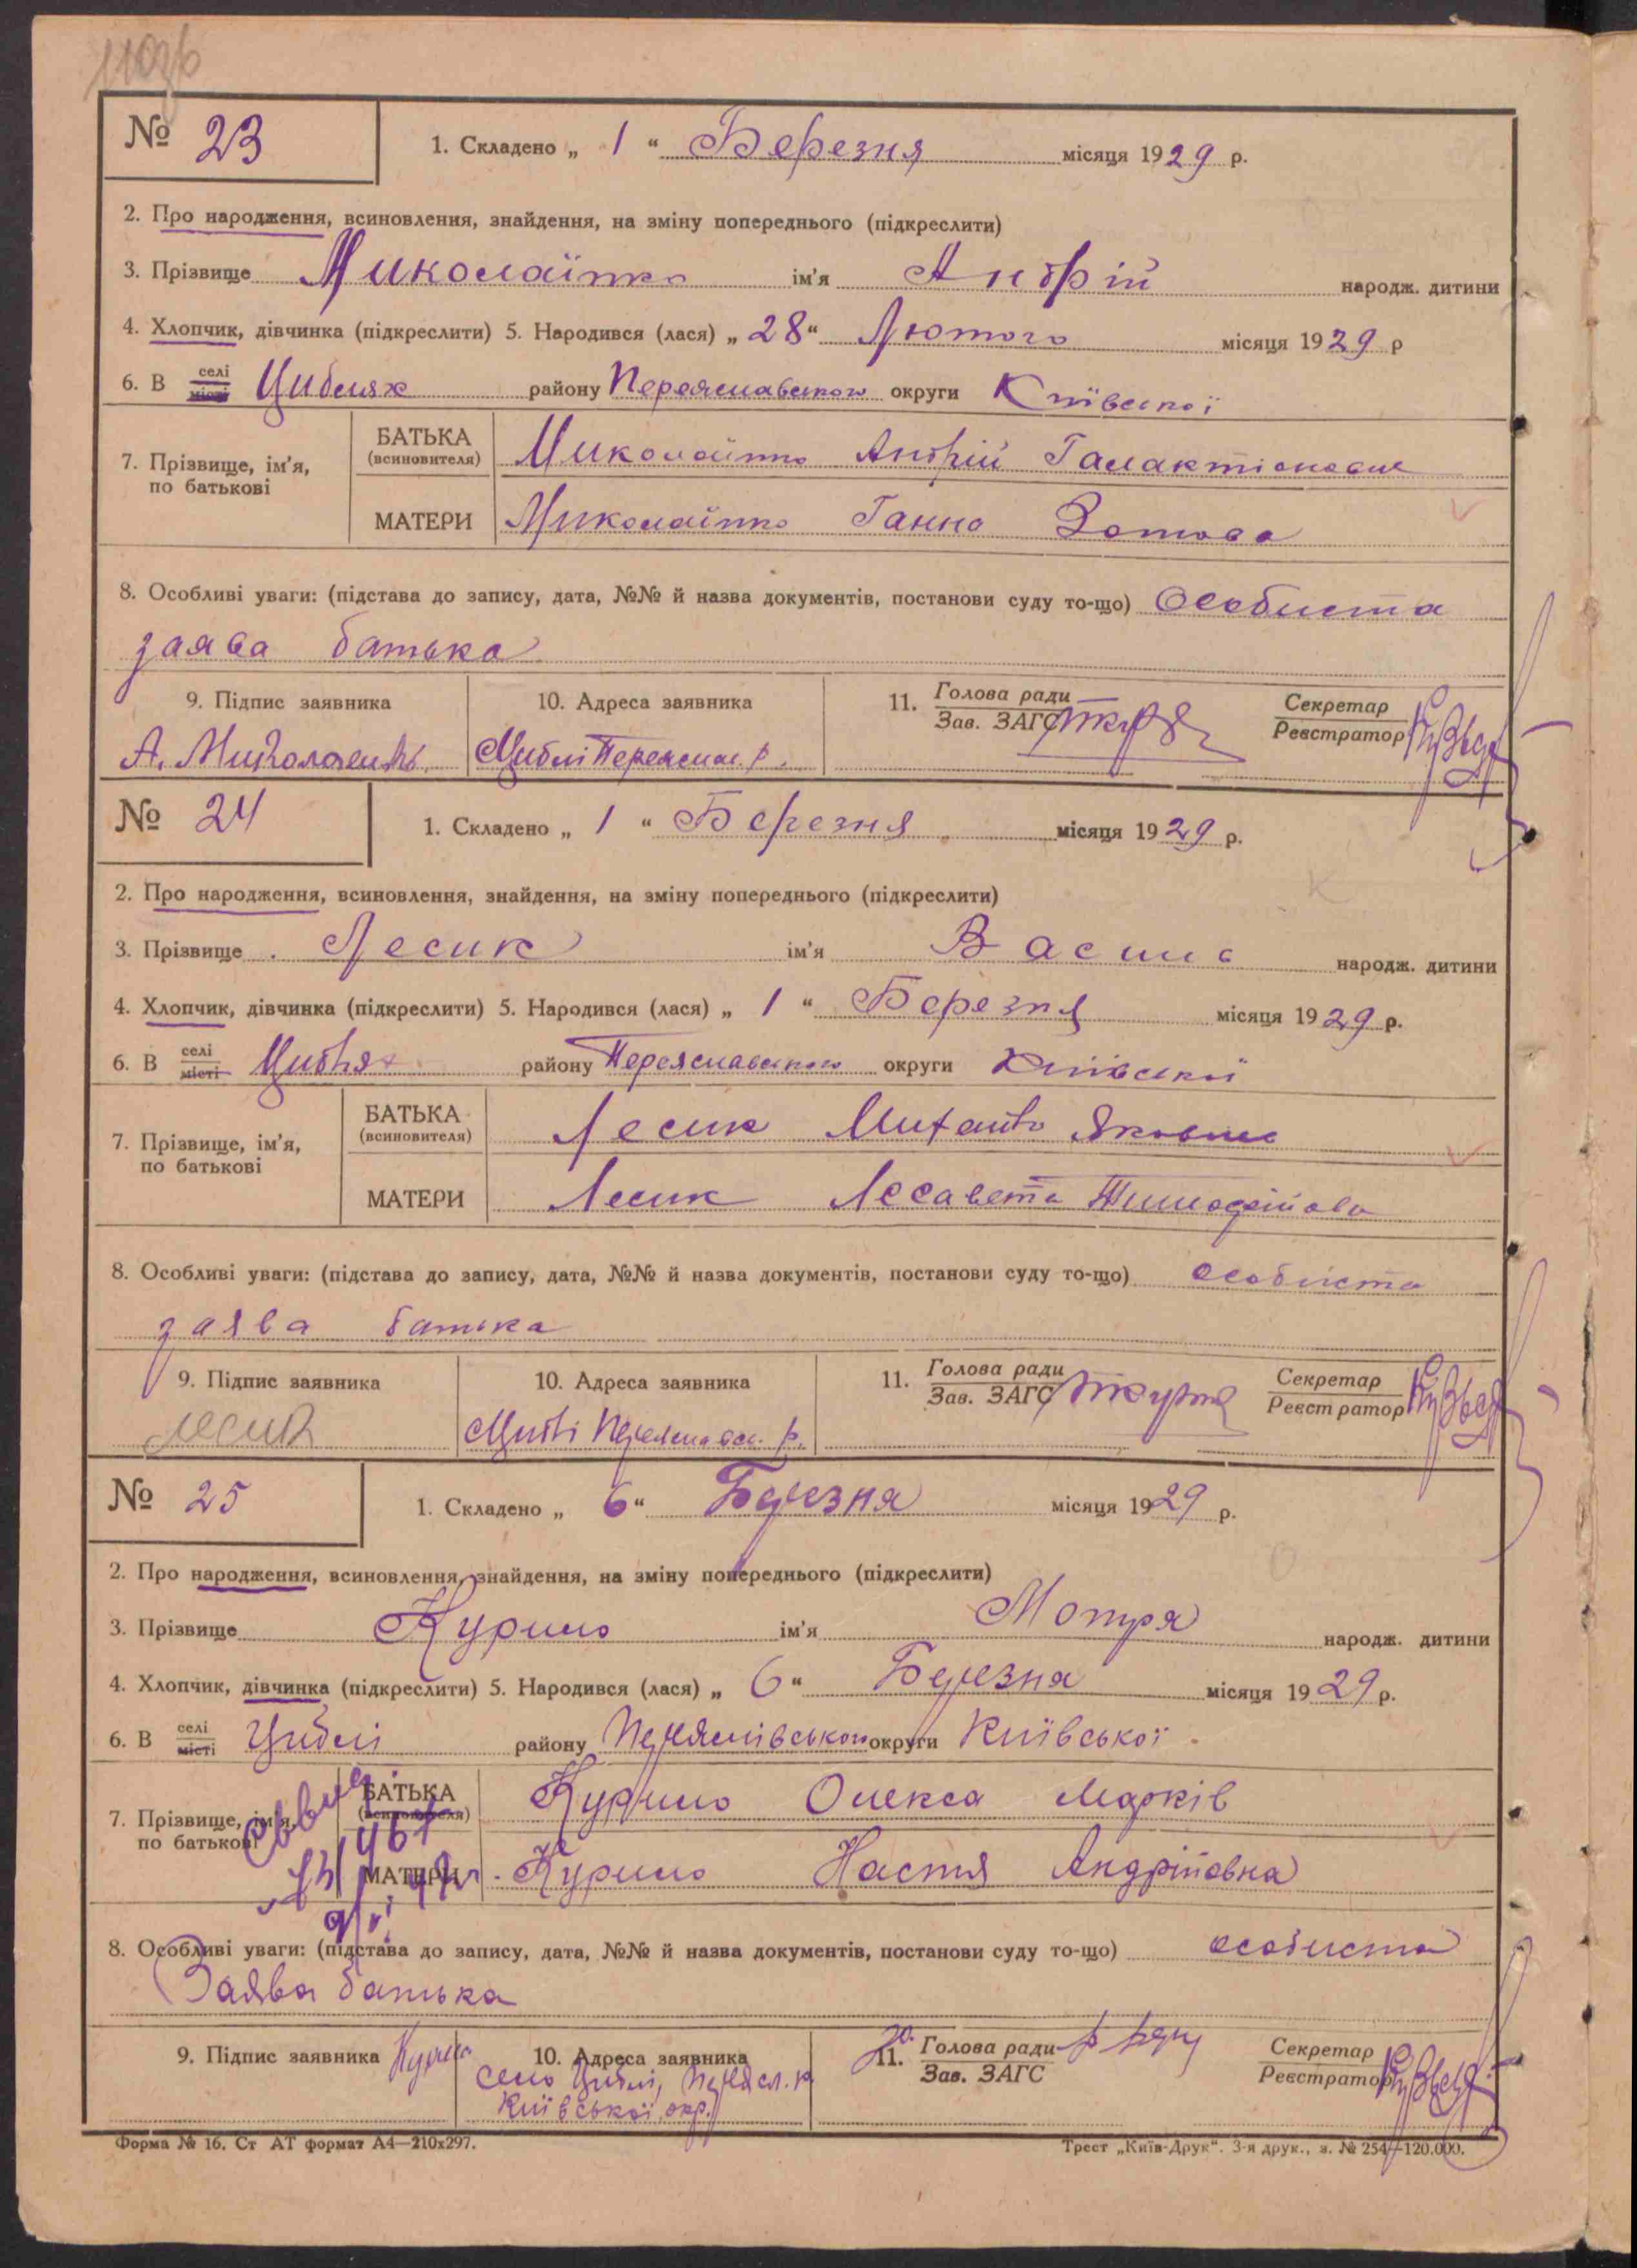 № 23
1. Складено „ 1 “ Березня місяця 1929 р.
2. Про народження, всиновлення, знайдення, на зміну попереднього (підкреслити)
3. Прізвище Миколаїнко ім'я Андрій народж. дитини
4. Хлопчик, дівчинка (підкреслити) 5. Народився (лася) „ 28 “ Лютого місяця 1929 р
6. В селі місті Циблях району Переяславського округи Київської
7. Прізвище, ім'я, по батькові
БАТЬКА (всиновителя) Миколаїнко Андрій Галактіонович
МАТЕРИ Миколаїнко Ганна Зотова
8. Особливі уваги: (підстава до запису, дата, №№ й назва документів, постанови суду то-що) Особиста
заява батька
9. Підпис заявника 10. Адреса заявника 11. Голова ради Зав. ЗАГС Секретар Реєстратор
А. Циблі Переяслав. р.
№ 24
1. Складено „ 1 “ Березня місяця 1929 р.
2. Про народження, всиновлення, знайдення, на зміну попереднього (підкреслити)
3. Прізвище Лесик ім'я Василь народж. дитини
4. Хлопчик, дівчинка (підкреслити) 5. Народився (лася) „ 1 “ Березня місяця 1929 р.
6. В селі місті Циблях району Переяславського округи Київської
7. Прізвище, ім'я, по батькові
БАТЬКА (всиновителя) Лесик Михайло Якович
МАТЕРИ Лесик Лесавета Тимофійова
8. Особливі уваги: (підстава до запису, дата, №№ й назва документів, постанови суду то-що) особиста
заява батька
9. Підпис заявника 10. Адреса заявника 11. Голова ради Зав. ЗАГС Секретар Реєстратор
Лесик Циблі Переяславс. р.
№ 25
1. Складено „ 6 “ Березня місяця 1929 р.
2. Про народження, всиновлення, знайдення, на зміну попереднього (підкреслити)
3. Прізвище Курило ім'я Мотря народж. дитини
4. Хлопчик, дівчинка (підкреслити) 5. Народився (лася) „ 6 “ Березня місяця 1929 р.
6. В селі місті Циблі району округи Київської
7. Прізвище, ім'я, по батькові
БАТЬКА (всиновителя) Курило Олекса Марків
МАТЕРИ Курило Настя Андріївна
8. Особливі уваги: (підстава до запису, дата, №№ й назва документів, постанови суду то-що) особиста
Заява батька
9. Підпис заявника 10. Адреса заявника 11. Голова ради Зав. ЗАГС Секретар Реєстратор
Село Циблі, Переясл. р
Київської окр.
Форма № 16. Ст АТ формат А4—210х297.
Трест „Київ-Друк“. 3-я друк., з. № 254—120.000.